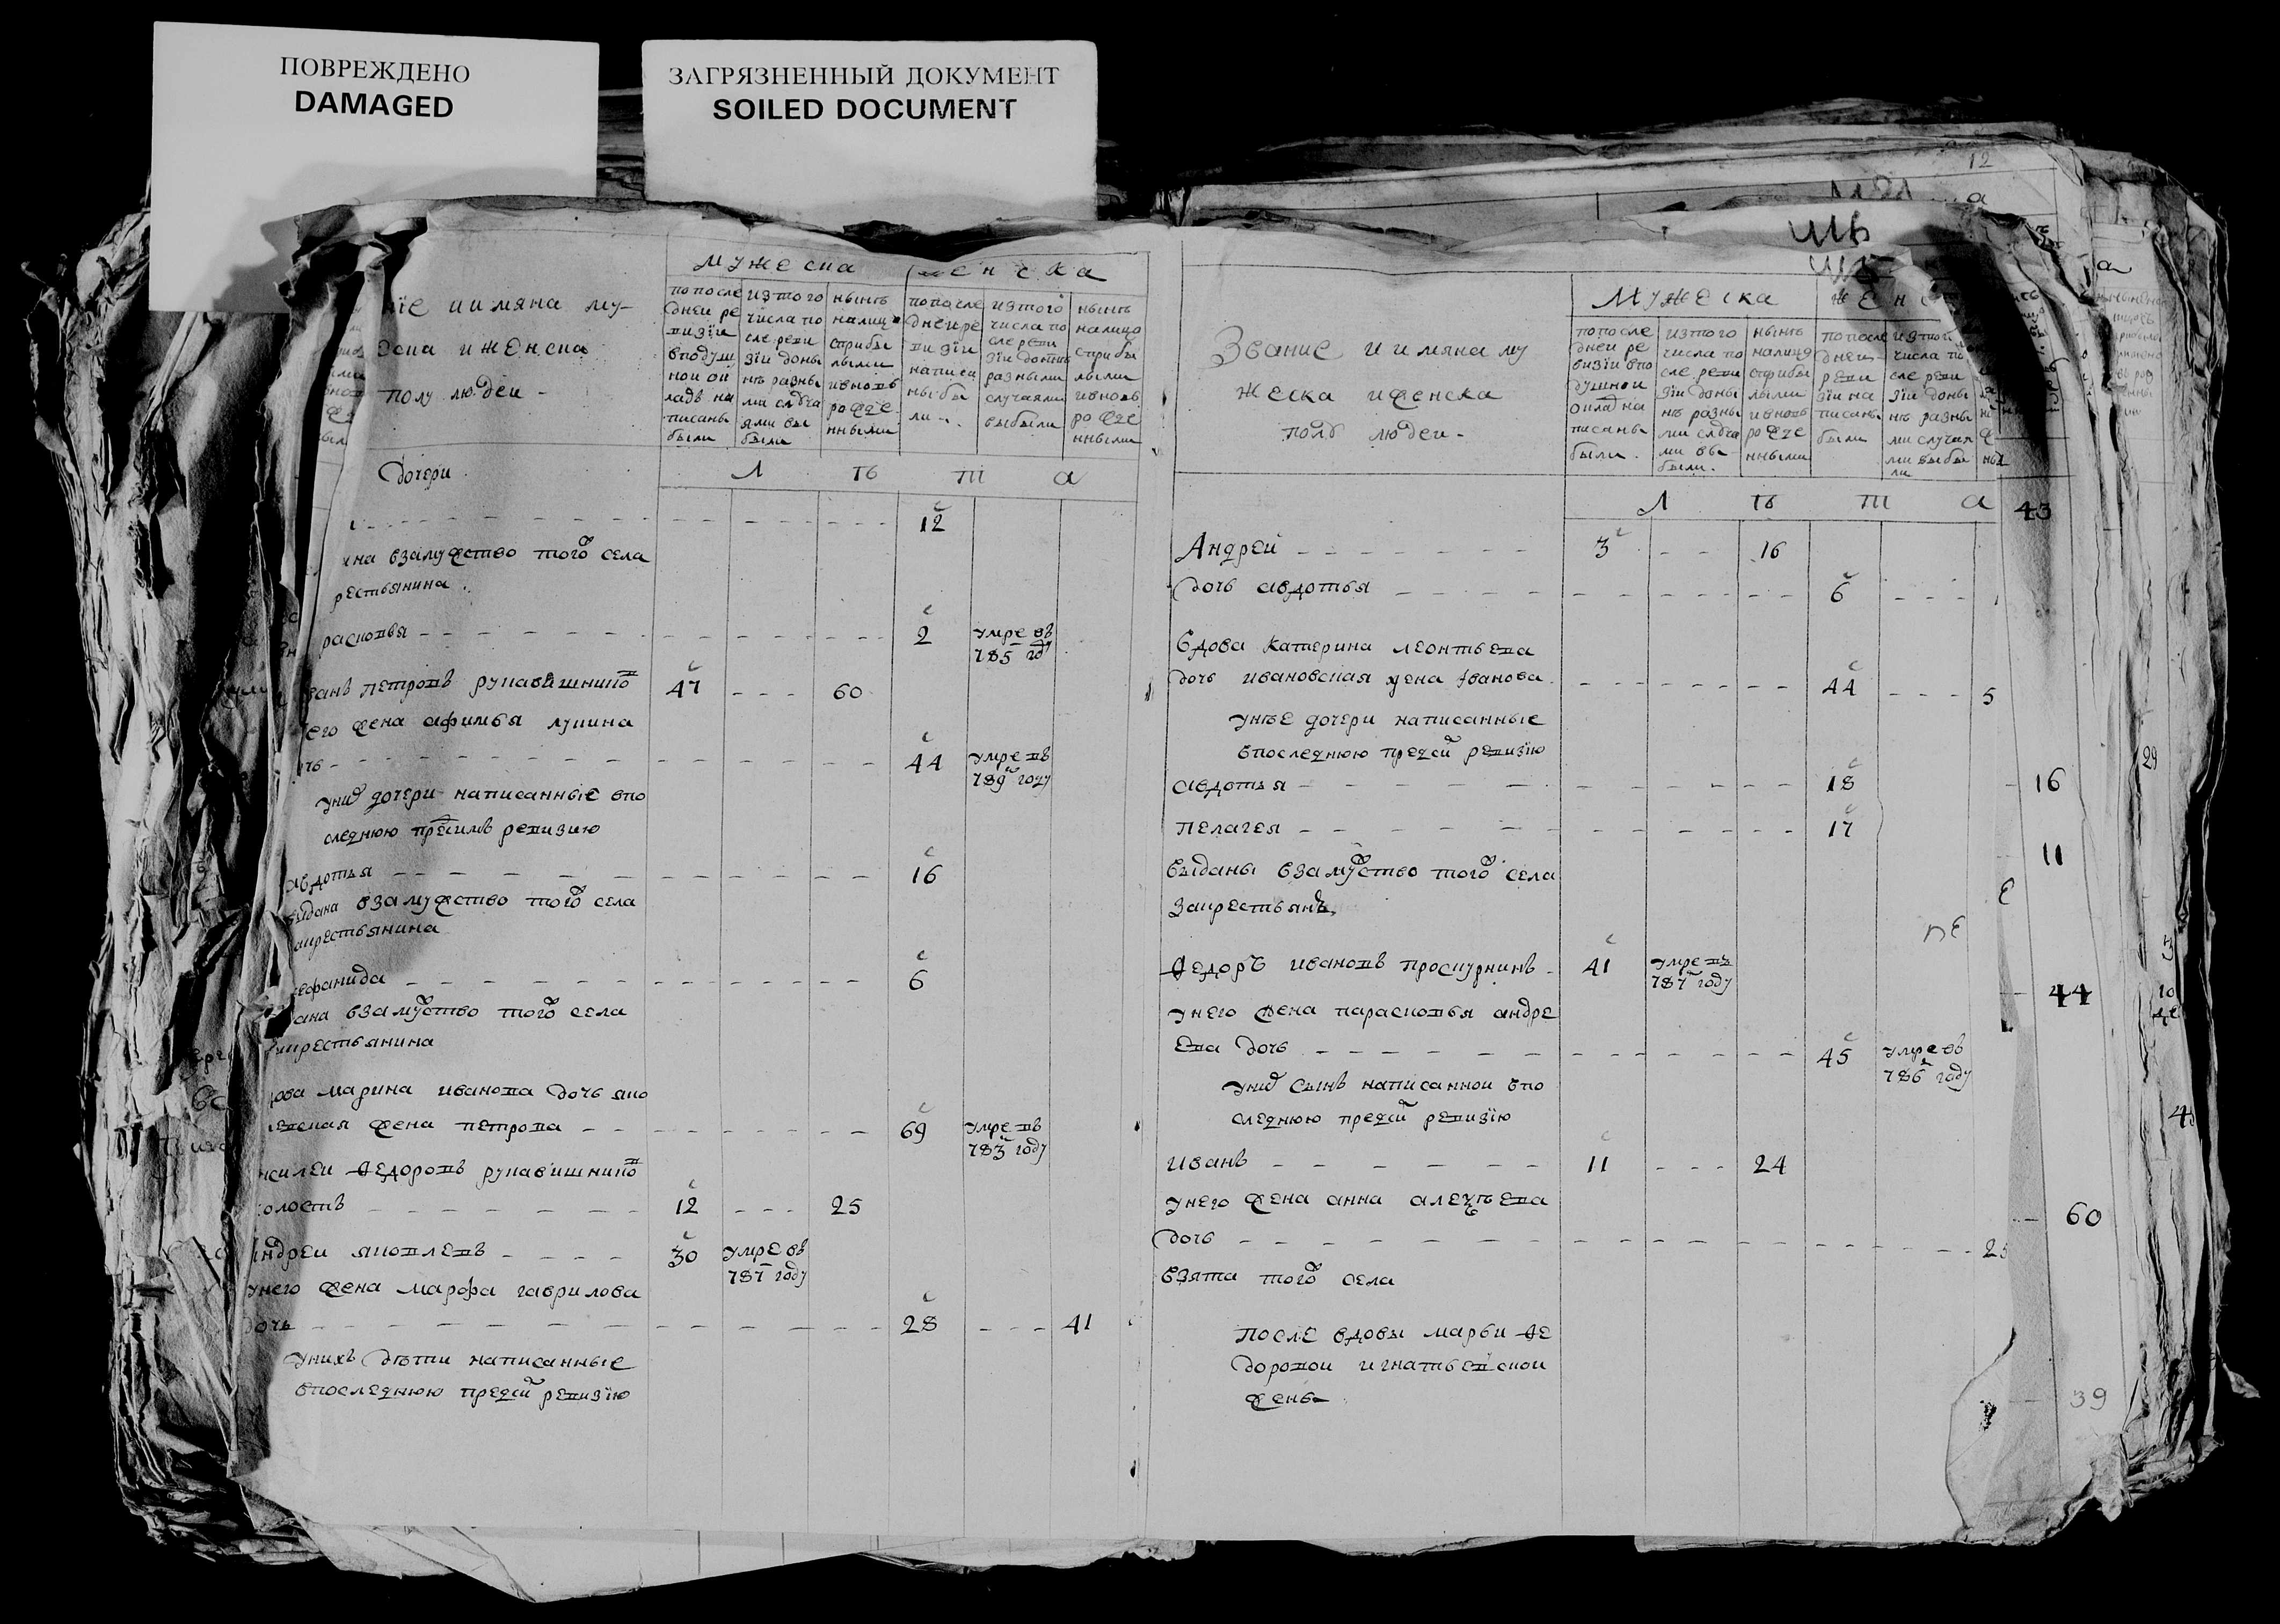 ПОВРЕЖДЕНО
DAMAGED
ЗАГРЯЗНЕННЫЙ ДОКУМЕНТ
SOILED DOCUMENT
їе иимяна му-
еска иженска
полу людеи -
мужеска
женска
попосле
днеи ре
визїи
вподуш
нои ок
ладъ на
писаны
были
изтого
числа по
сле реви
зїи доны
нѣ разны
ми случа
ями вы
были
нынѣ
налицо
сприбы
лыми
ивновь
рожде
нными
попосле
дней ре
визїи
написа
ны бы
ли
изтого
числа по
сле реви
зїи донынѣ
разными
случаями
выбыли
нынѣ
налицо
сприбы
лыми
ивновь
рожде
нными
лѣта
Дочери
12
на взамужство того села
рестьянина
расковья 2 умре въ 785 году
ванъ петровъ рукавишников 47 60
его жена афимья лукина
чь 44 умре въ 789 году
у них дочери написанные впо
следнюю пред сим ревизию
авдотья 16
выдана взамужство того села
закрестьянина
еофанида 6
ана взамужство того села
закрестьянина
дова марина иванова дочь яко
влевская жена петрова 69 умре въ 783 году
василеи федоровъ рукавишников
холостъ 12 25
Андреи яковлевъ 30 умре въ 787 году
унего жена марфа гаврилова
дочь 28 41
унихъ дѣти написанные
впоследнюю пред сию ревизїю
Звание иимяна му
жеска иженска
полу людеи -
Мужеска
женс
попосле
днеи ре
визїи впо
душнои
оклад на
писаны
были
изтого
числа по
сле реви
зїи доны
нѣ разны
ми случа
ми вы
были
нынѣ
налицо
сприбы
лыми
ивновь
рожде
нными
попосле
днеи
реви
зїи на
писаны
были
изтого
числа по
сле реви
зїи доны
нѣ разны
ми случая
ми выбы
ли
лѣта
43
Андреи 3 16
дочь авдотья 6
Вдова катерина леонтьева
дочь ивановская жена иванова 44 5
унѣе дочери написанные
впоследнюю пред сию ревизїю
авдотья 18
16
пелагея 17
11
выданы взамужство того села
закрестьянъ
федоръ ивановъ проскурнинъ 41 умре въ 787 году
44
унего жена парасковья андре
ева дочь 45 умре въ 786 году
у них сынъ написаннои впо
следнюю пред сию ревизїю
иванъ 11 24
унего жена анна алексѣева
60
дочь 2
взята того села
после вдовы марьи фе
доровои игнатьевскои
жены
39
12
29